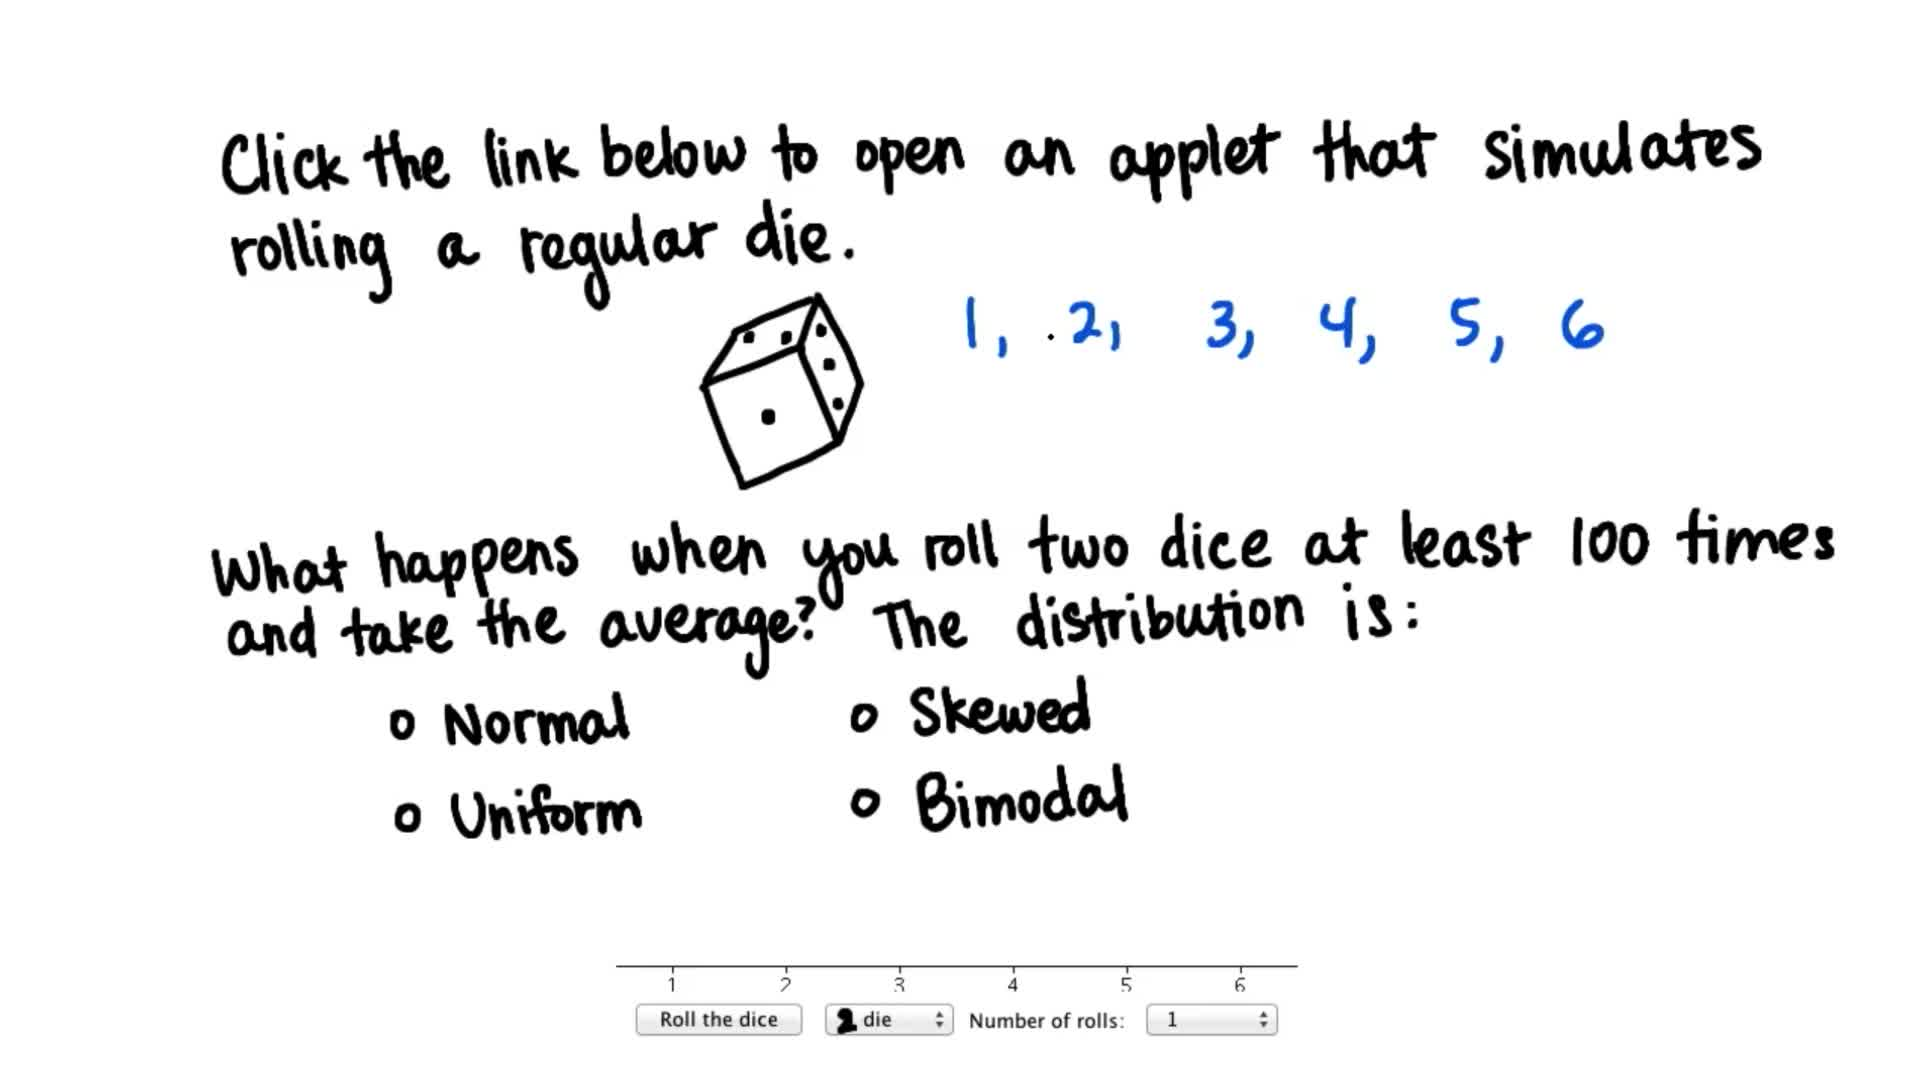 Click the link below to open an applet that simulates
rolling a regular die.
1, 2, 3, 4, 5, 6
What happens when you roll two dice at least 100 times
and take the average? The distribution is:
o Normal o Skewed
o Uniform o Bimodal
1 2 3 4 5 6
Roll the dice 2 die Number of rolls: 1